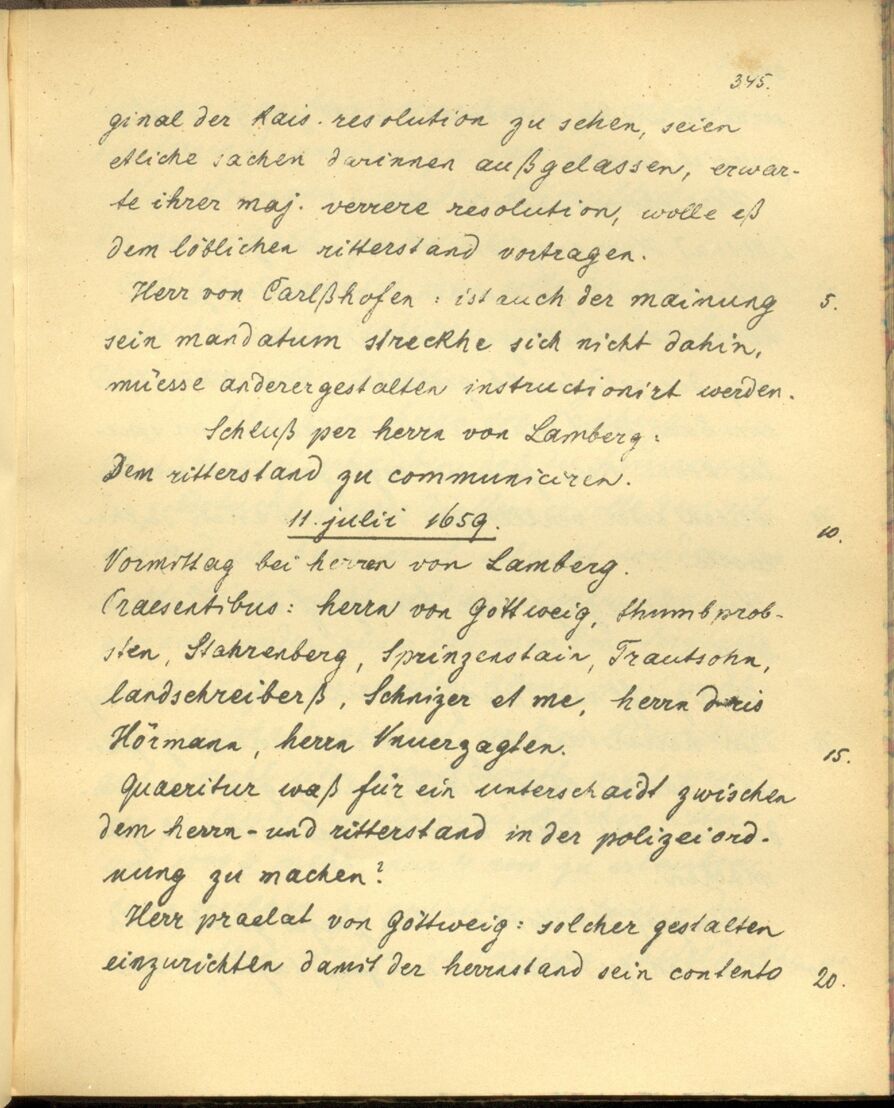 345.
ginal der Kais. resolution zu sehen, seien
etliche sachen darinnen außgelassen, erwar-
te ihrer maj. verrere resolution, wolle eß
dem löblichen ritterstand vortragen.
Herr von Carlßhofen: ist auch der mainung 5.
sein mandatum streckhe sich nicht dahin,
müesse anderergestalten instructionirt werden.
Schluß per herrn von Lamberg:
Dem ritterstand zu communiciren.
11. julii 1659. 10.
Vormittag bei herren von Lamberg.
Praesentibus: herrn von Göttweig, thumbprob-
sten, Stahrenberg, Sprinzenstain, Trautsohn,
landschreiberß, Schnizer et me, herrn doris
Hörmann, herrn Vnuerzagten. 15.
Quaeritur waß für ein unterschaidt zwischen
dem herrn- und ritterstand in der polizeiord-
nung zu machen?
Herr praelat von Göttweig: solcher gestalten
einzurichten damit der herrnstand sein contento 20.